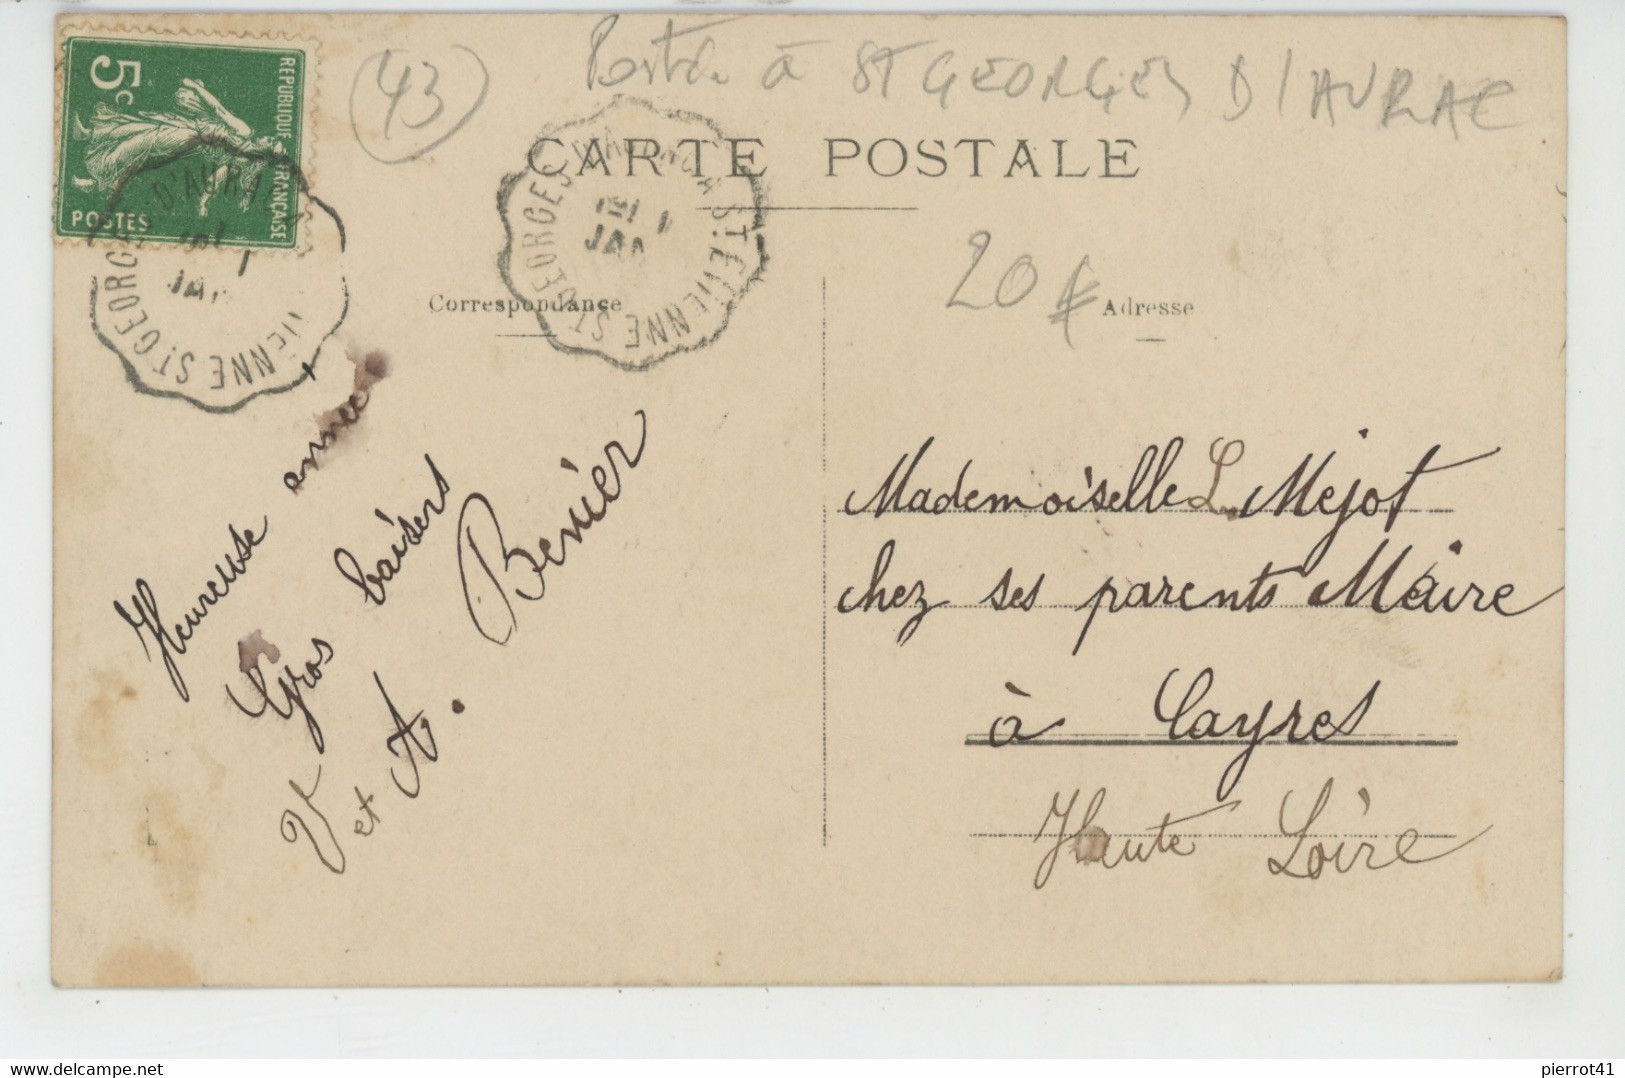 (43)
à ST GEORGES D'AURAC
REPUBLIQUE FRANÇAISE
5c
POSTES
CARTE POSTALE
ST GEORGES D'AURA
TIENNE
JAN
ST GEORGES D'AURAC A ST ETIENNE
JAN
20 €
Correspondance
Adresse
Heureuse année
Gros baisers
V et A. Benier
Mademoiselle L. Mejot
chez ses parents Maire
à Cayres
Haute Loire
pierrot41